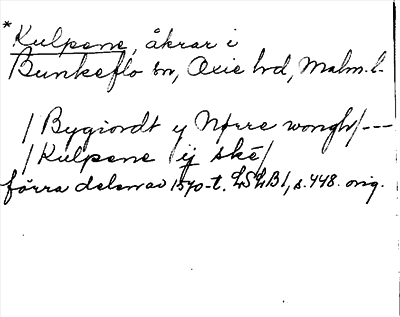 *Kulpene, åkrar i
Bunkeflo sn, Oxie hd, Malm. l.
/Bygiordt y Nørre wongh/---
/Kulpene ij ské/
förra delen av 1570-t. LSLB1, s. 448. orig.